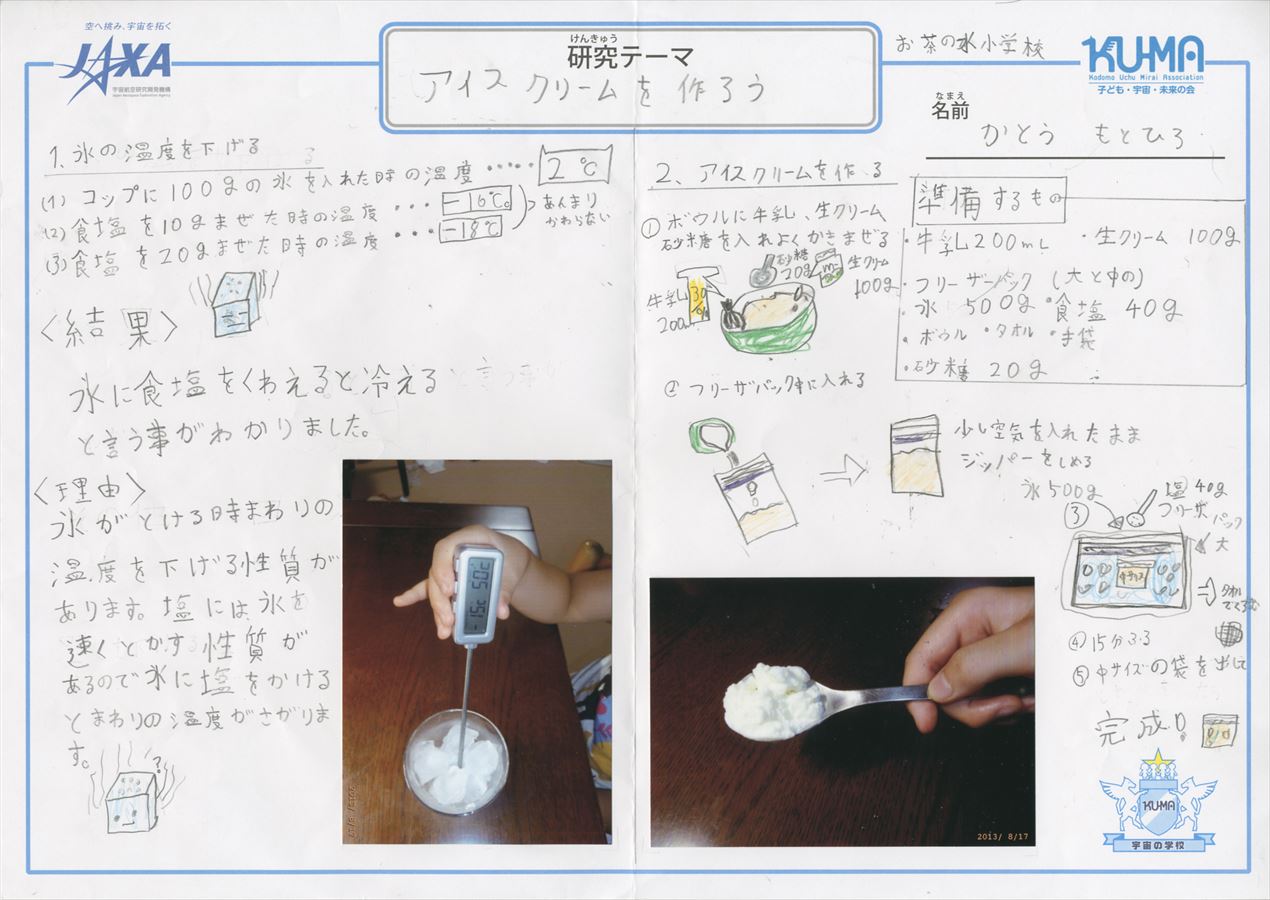 空へ挑み、宇宙を拓く
JAXA
宇宙航空研究開発機構
Japan Aerospace Exploration Agency
けんきゅう
研究テーマ
アイスクリームを作ろう
お茶の水小学校
KU-MA
Kodomo Uchu Mirai Association
子ども・宇宙・未来の会
なまえ
名前
かとう もとひろ
1、氷の温度を下げる
(1) コップに100gの氷を入れた時の温度・・・・・ 2℃
(2) 食塩を10gまぜた時の温度・・・ -16℃。
(3) 食塩を20gまぜた時の温度・・・ -18℃
あんまり
かわらない
<結果>
氷に食塩をくわえると冷える
と言う事がわかりました。
<理由>
氷がとける時まわりの
温度を下げる性質が
あります。塩には氷を
速くとかす性質が
あるので氷に塩をかける
とまわりの温度がさがりま
す。
2、アイスクリームを作る
①ボウルに牛乳、生クリーム
砂糖を入れよくかきまぜる
砂糖
20g
生クリーム
100g
牛乳
200
②フリーザパック中に入れる
少し空気を入れたまま
ジッパーをしめる
準備するもの
・牛乳200mL ・生クリーム 100g
・フリーザーパック (大と中の)
氷 500g ・食塩 40g
・ボウル ・タオル ・手袋
・砂糖 20g
氷500g
塩 40g
③
フリーザパック
大
中サイズ
タオル
でくるむ
④15分ふる
⑤中サイズの袋を出して
完成!
2013/ 8/17
KU-MA
宇宙の学校